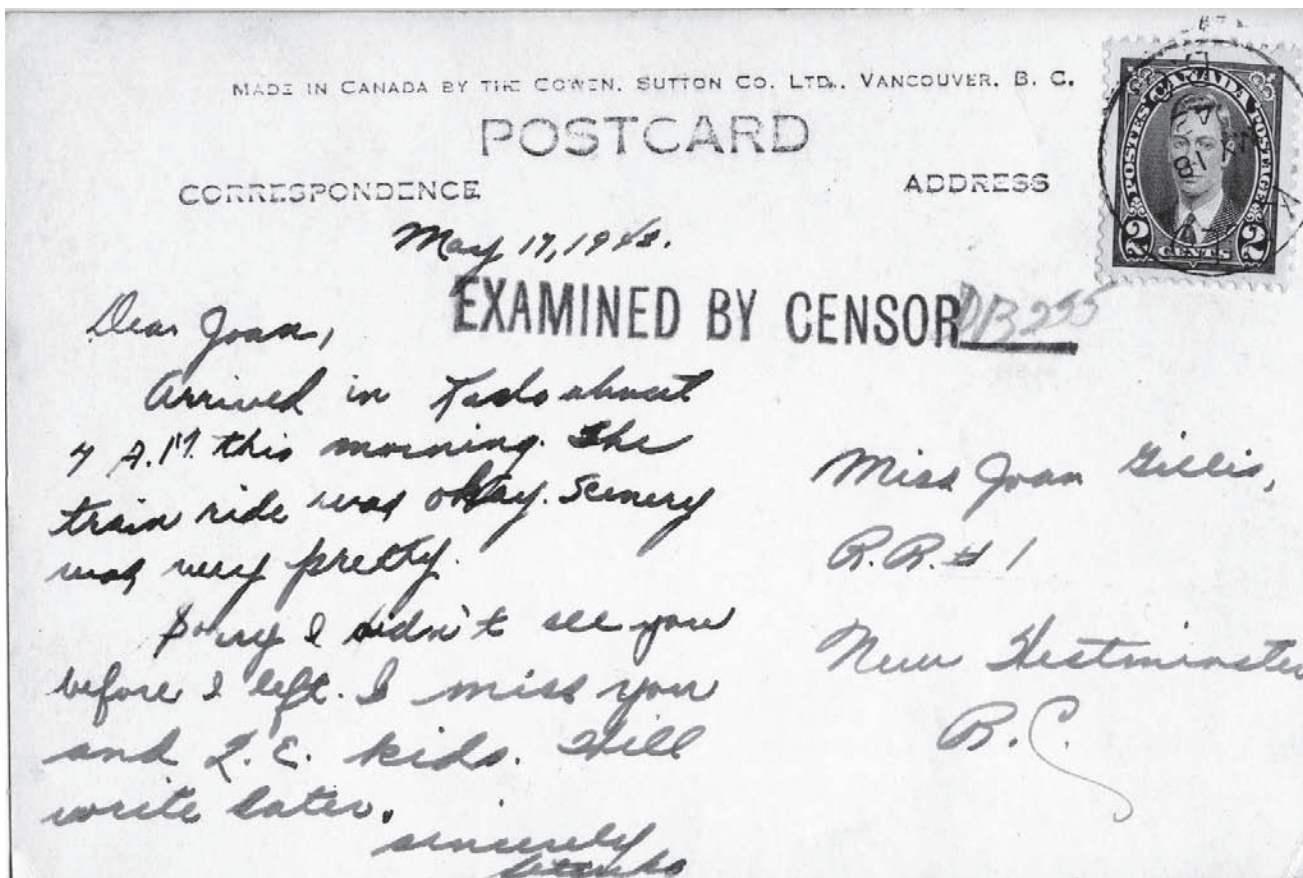 MADE IN CANADA BY THE COWEN, SUTTON CO. LTD., VANCOUVER, B. C.
POSTCARD
CORRESPONDENCE
ADDRESS
POSTES CANADA POSTAGE
2 CENTS 2
May 17, 1942.
EXAMINED BY CENSOR DB255
Dear Joan,
Arrived in Kaslo about
7 A.M. this morning. The
train ride was okay. Scenery
was very pretty.
Sorry I didn't see you
before I left. I miss you
and Q.E. kids. Will
write later.
sincerely
Miss Joan Gillis,
R.R. # 1
New Westminster
B.C.